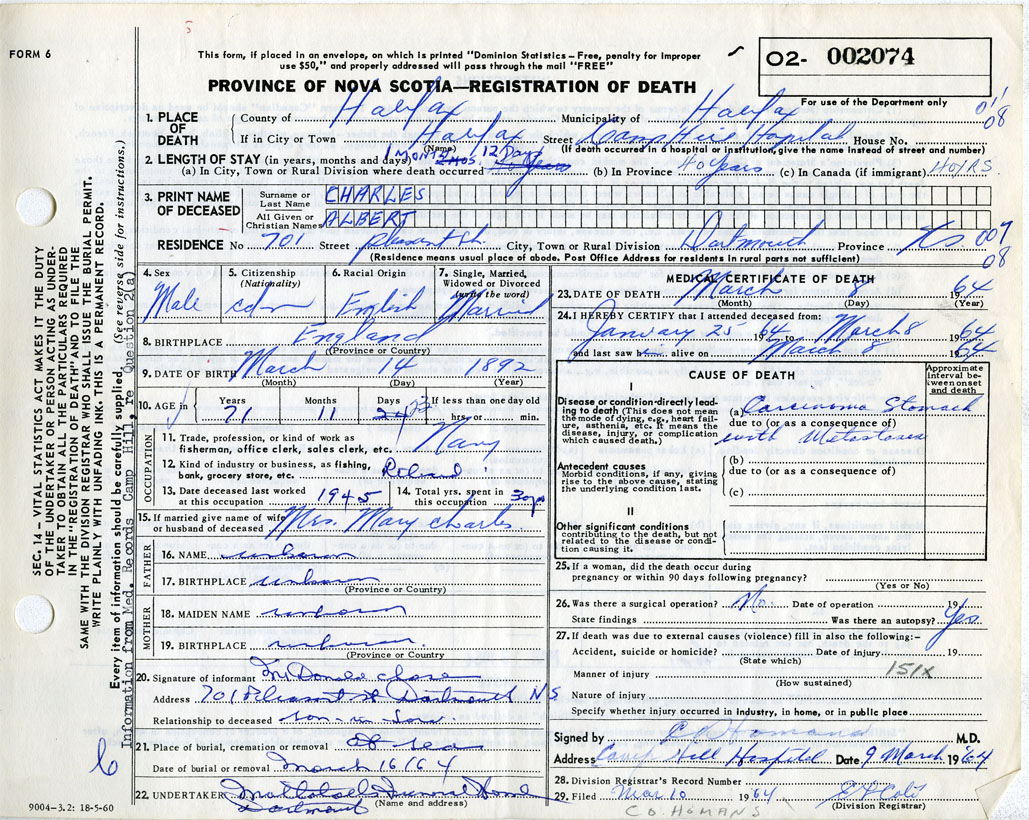 FORM 6
This form, if placed in an envelope, on which is printed "Dominion Statistics – Free, penalty for improper
use $50," and properly addressed will pass through the mail "FREE"
O2- 002074
PROVINCE OF NOVA SCOTIA—REGISTRATION OF DEATH
For use of the Department only
1. PLACE OF DEATH
County of Halifax Municipality of Halifax 01 08
If in City or Town Halifax Street Camp Hill Hospital House No.
(Name) (If death occurred in a hospital or institution, give the name instead of street and number)
2. LENGTH OF STAY (in years, months and days) 1 MONTH 12 Days
(a) In City, Town or Rural Division where death occurred (b) In Province 40 years (c) In Canada (if immigrant) 40 YRS
3. PRINT NAME OF DECEASED
Surname or Last Name CHARLES
All Given or Christian Names ALBERT
RESIDENCE No 701 Street Pleasant St. City, Town or Rural Division Dartmouth Province NS 007 08
(Residence means usual place of abode. Post Office Address for residents in rural parts not sufficient)
4. Sex
Male
5. Citizenship (Nationality)
cdn
6. Racial Origin
English
7. Single, Married, Widowed or Divorced (write the word)
Married
8. BIRTHPLACE England
(Province or Country)
9. DATE OF BIRTH March 14 1892
(Month) (Day) (Year)
10. AGE in Years Months Days If less than one day old
71 11 24 hrs. or min.
OCCUPATION
11. Trade, profession, or kind of work as
fisherman, office clerk, sales clerk, etc. Navy
12. Kind of industry or business, as fishing,
bank, grocery store, etc. Retired
13. Date deceased last worked at this occupation 1945
14. Total yrs. spent in this occupation 30 yrs
15. If married give name of wife
or husband of deceased Mrs. Mary Charles
FATHER
16. NAME unknown
17. BIRTHPLACE unknown
(Province or Country)
MOTHER
18. MAIDEN NAME unknown
19. BIRTHPLACE unknown
(Province or Country
20. Signature of informant
Address 701 Pleasant St Dartmouth N S
Relationship to deceased son-in-law.
21. Place of burial, cremation or removal at sea
Date of burial or removal March 16/64
22. UNDERTAKER Funeral Home
Dartmouth (Name and address)
MEDICAL CERTIFICATE OF DEATH
23. DATE OF DEATH March 8 1964
(Month) (Day) (Year)
24. I HEREBY CERTIFY that I attended deceased from:
January 25 1964 to March 8 1964
and last saw him alive on March 8 1964
CAUSE OF DEATH
Approximate interval between onset and death
I
Disease or condition directly leading
to death (This does not mean
the mode of dying, e.g., heart failure,
asthenia, etc. It means the
disease, injury, or complication
which caused death.)
(a) Carcinoma Stomach
due to (or as a consequence of)
with Metastases
Antecedent causes
Morbid conditions, if any, giving
rise to the above cause, stating
the underlying condition last.
(b)
due to (or as a consequence of)
(c)
II
Other significant conditions
contributing to the death, but not
related to the disease or condition
causing it.
25. If a woman, did the death occur during
pregnancy or within 90 days following pregnancy?
(Yes or No)
26. Was there a surgical operation? No. Date of operation 19
State findings Was there an autopsy? Yes.
27. If death was due to external causes (violence) fill in also the following:–
Accident, suicide or homicide? Date of injury 19
(State which) 151X
Manner of injury
(How sustained)
Nature of injury
Specify whether injury occurred in industry, in home, or in public place
Signed by C D Homans M.D.
Address Camp Hill Hospital Date 9 March 1964
28. Division Registrar's Record Number
29. Filed Mar 10 1964
(Division Registrar)
C D. HOMANS
9004-3.2: 18-5-60
SEC. 14 – VITAL STATISTICS ACT MAKES IT THE DUTY
OF THE UNDERTAKER OR PERSON ACTING AS UNDERTAKER
TO OBTAIN ALL THE PARTICULARS REQUIRED
IN THE "REGISTRATION OF DEATH" AND TO FILE THE
SAME WITH THE DIVISION REGISTRAR WHO SHALL ISSUE THE BURIAL PERMIT.
WRITE PLAINLY WITH UNFADING INK. THIS IS A PERMANENT RECORD.
Every item of information should be carefully supplied. (See reverse side for instructions.)
Information from Med. Records Camp Hill, re Question 2(a)